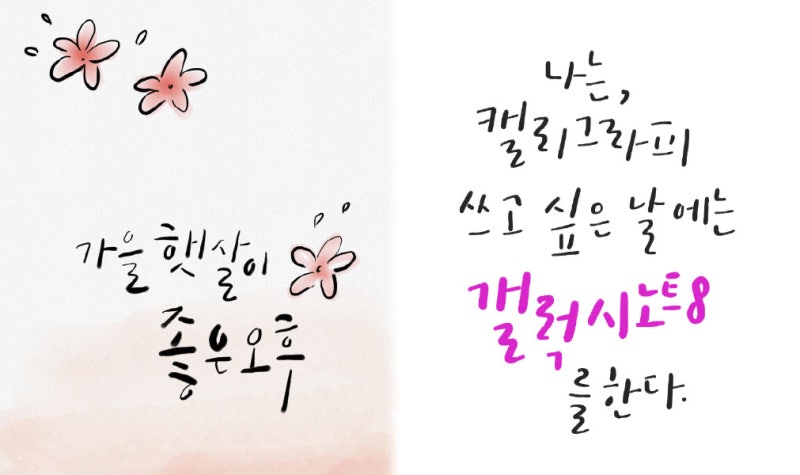 가을 햇살이
좋은 오후
나는,
캘리그라피
쓰고 싶은 날에는
갤럭시노트8
를 한다.